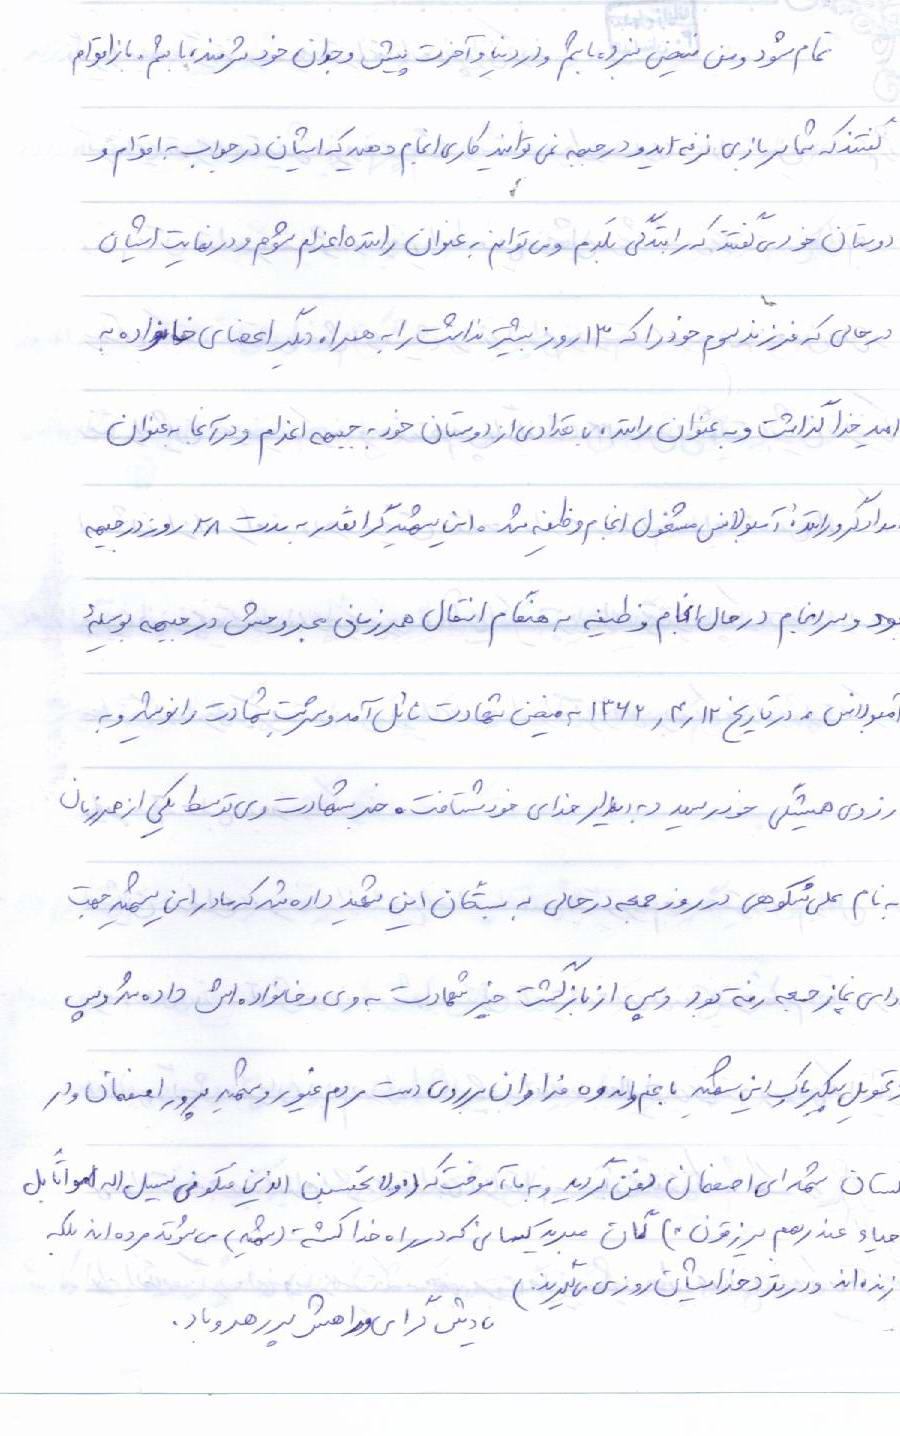 تمام شود و من فیضی نبرده باشم و در دنیا و آخرت پیش وجدان خود شرمنده باشم . باز اقوام
گفتند که شما سربازی نرفته اید و در جبهه نمی توانید کاری انجام دهید که ایشان در جواب به اقوام و
دوستان خود می گفتند که رانندگی بلدم و می توانم به عنوان راننده اعزام شوم و در نهایت ایشان
در حالی که فرزند سوم خود را که ۱۳ روز بیشتر نداشت را به همراه دیگر اعضای خانواده به
امید خدا گذاشت و به عنوان راننده با تعدادی از دوستان خود به جبهه اعزام و در آنجا به عنوان
امدادگر و رانندهٔ آمبولانس مشغول انجام وظیفه شد . این شهید گرانقدر به مدت ۲۸ روز در جبهه
بود و سرانجام در حال انجام وظیفه به هنگام انتقال همرزمان مجروحش در جبهه بوسیلهٔ
آمبولانس ، در تاریخ ۱۲ ر ۴ ر ۱۳۶۲ به فیض شهادت نائل آمد و شربت شهادت را نوشید و به
رزوی همیشگی خود رسید و به دیدار خدای خود شتافت . خبر شهادت وی توسط یکی از همرزمان
به نام علی شکوهی در روز جمعه در حالی به بستگان این شهید داده شد که مادر این شهید جهت
دای نماز جمعه رفته بود و پس از بازگشت خبر شهادت به وی و خانواده اش داده شد و پس
تحویل پیکر پاک این شهید با غم و اندوه فراوان بر روی دست مردم غیور و شهید پرور اصفهان و در
لستان شهدای اصفهان دفن گردید و به ما آموخت که (ولا تحسبن الذین قتلوا فی سبیل اله امواتاً بل
حیاء عند ربهم یرزقون .) گمان مبرید کسانی که در راه خدا کشته (شهید) می شوند مرده اند بلکه
زنده اند و در نزد خدا ایشان روزی می گیرند .)
یادش گرامی و راهش پر رهرو باد .